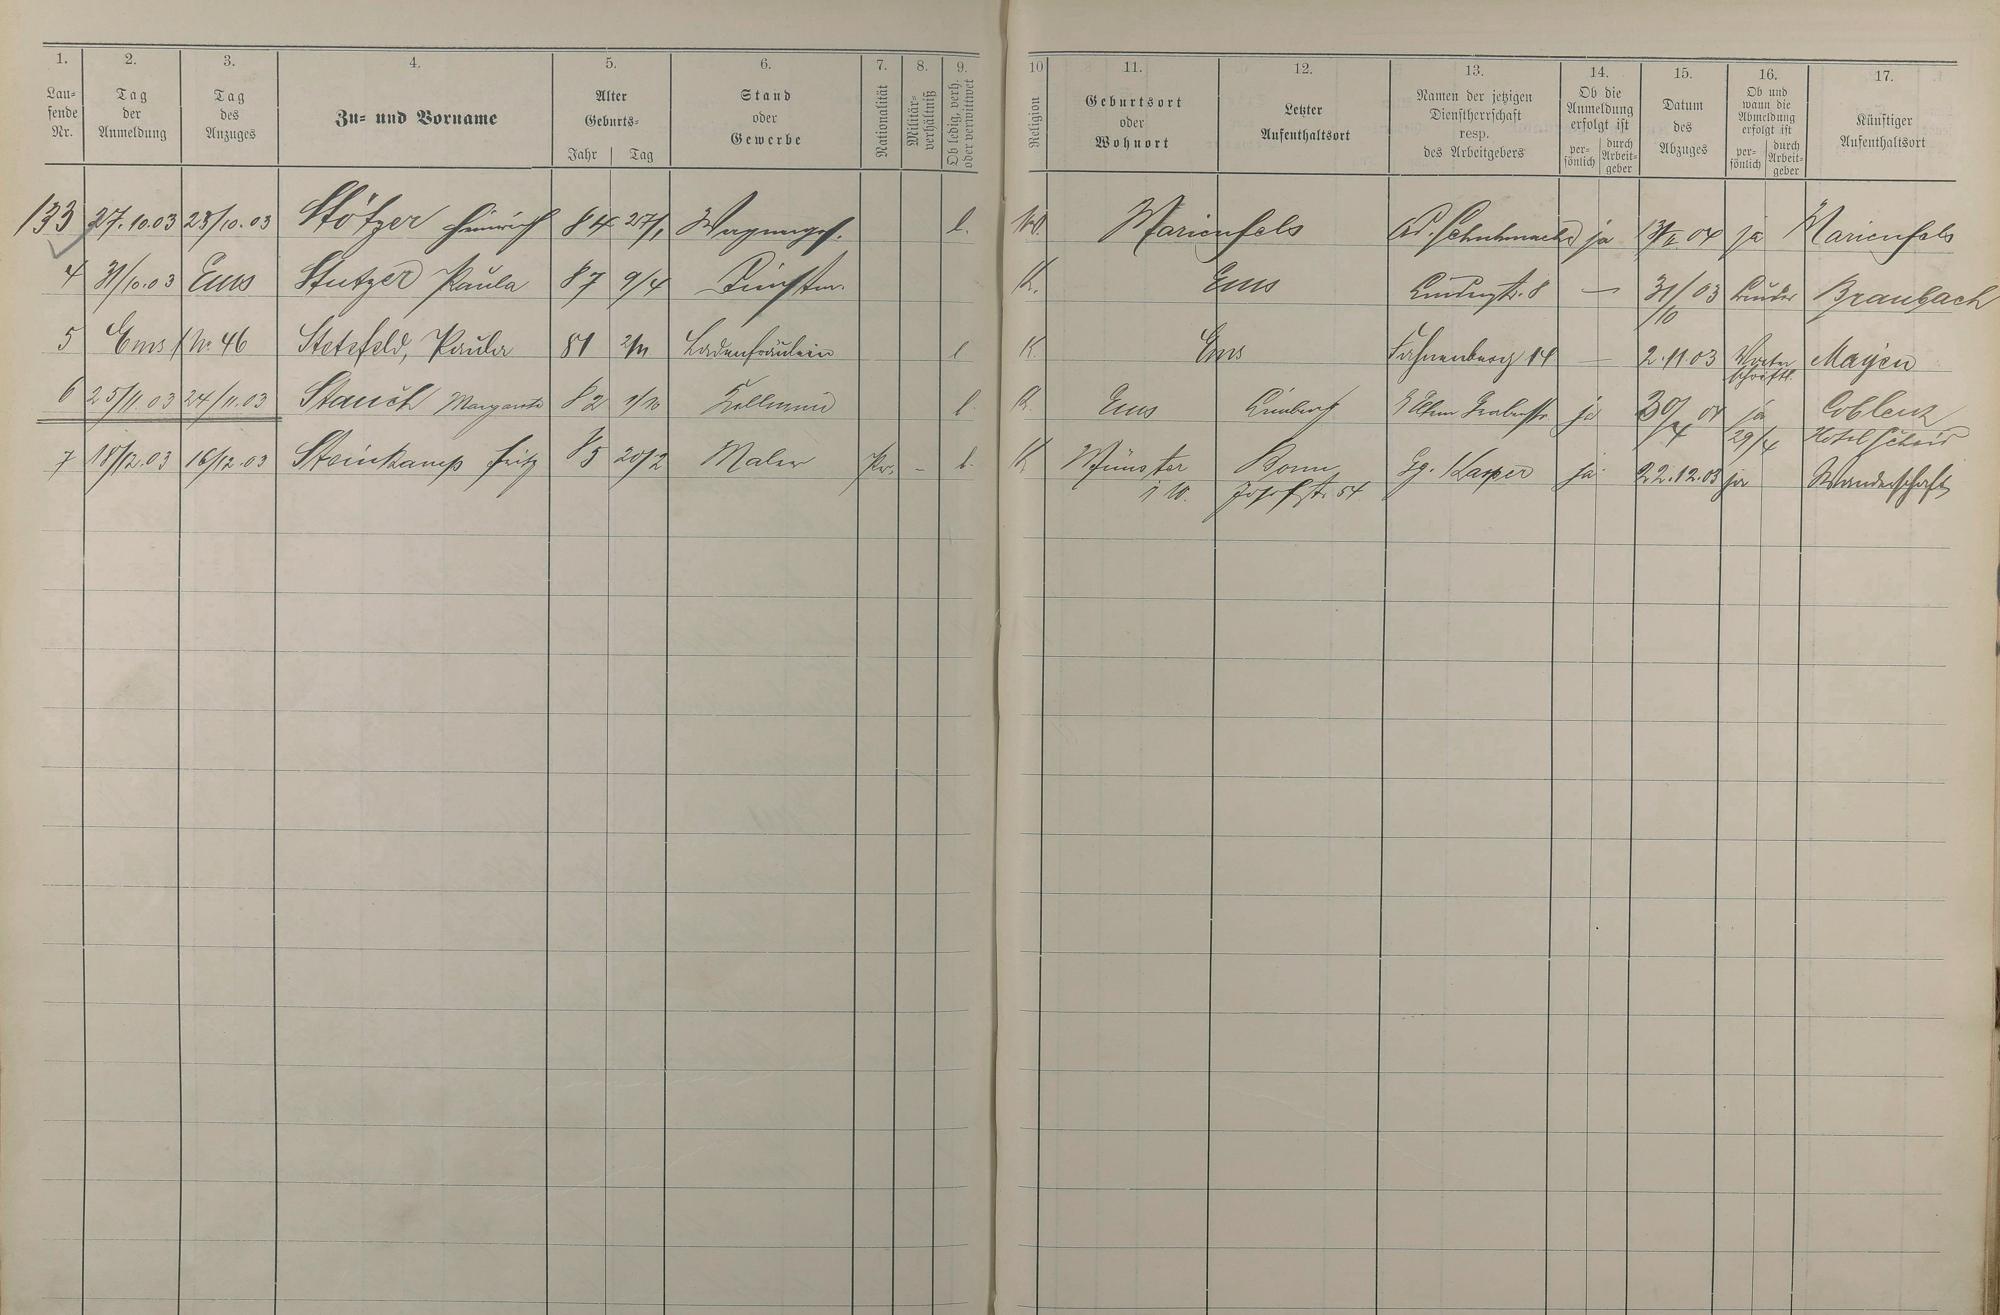 1. 2. 3. 4. 5. 6. 7. 8. 9. 10 11. 12. 13. 14. 15. 16. 17.
Lau-
fende
Nr.
Tag
der
Anmeldung
Tag
des
Anzuges
Zu- und Vorname
Alter
Geburts-
Jahr Tag
Stand
oder
Gewerbe
Nationalität
Militär-
verhältniß
Ob ledig, verh.
oder verwittwet
Religion
Geburtsort
oder
Wohnort
Letzter
Aufenthaltsort
Namen der jetzigen
Dienstherrschaft
resp.
des Arbeitgebers
Ob die
Anmeldung
erfolgt ist
per-
sönlich
durch
Arbeit-
geber
Datum
des
Abzuges
Ob und
wann die
Abmeldung
erfolgt ist
per-
sönlich
durch
Arbeit-
geber
Künftiger
Aufenthaltsort
133 27.10.03 23/10.03 Stötzer Heinrich 84 27/1 l. Marienfels Ad. Schuhmacher ja ja Marienfels
4 31/10.03 Ems Stutzer Paula 87 9/4 K. Ems 8 — 31/10 03 Braubach
5 Ems No 46 Stetefeld, Paula 81 2/11 Ladenfräulein l K. Ems Fahnenberg 14 — 2.11.03 Mayen
6 25/11.03 24/11.03 Stauch Margarete 82 1/10 Kellnerin l. K. Ems Limburg ja 30/4 04 ja 29/4 Coblenz
Hotel Scheid
7 18/12.03 16/12.03 Steinkamp Fritz 85 20/2 Maler Pr. - l. K Münster i W. Bonn Josefstr. 54 Gg. Kasper ja 22.12.03 ja Wanderschaft